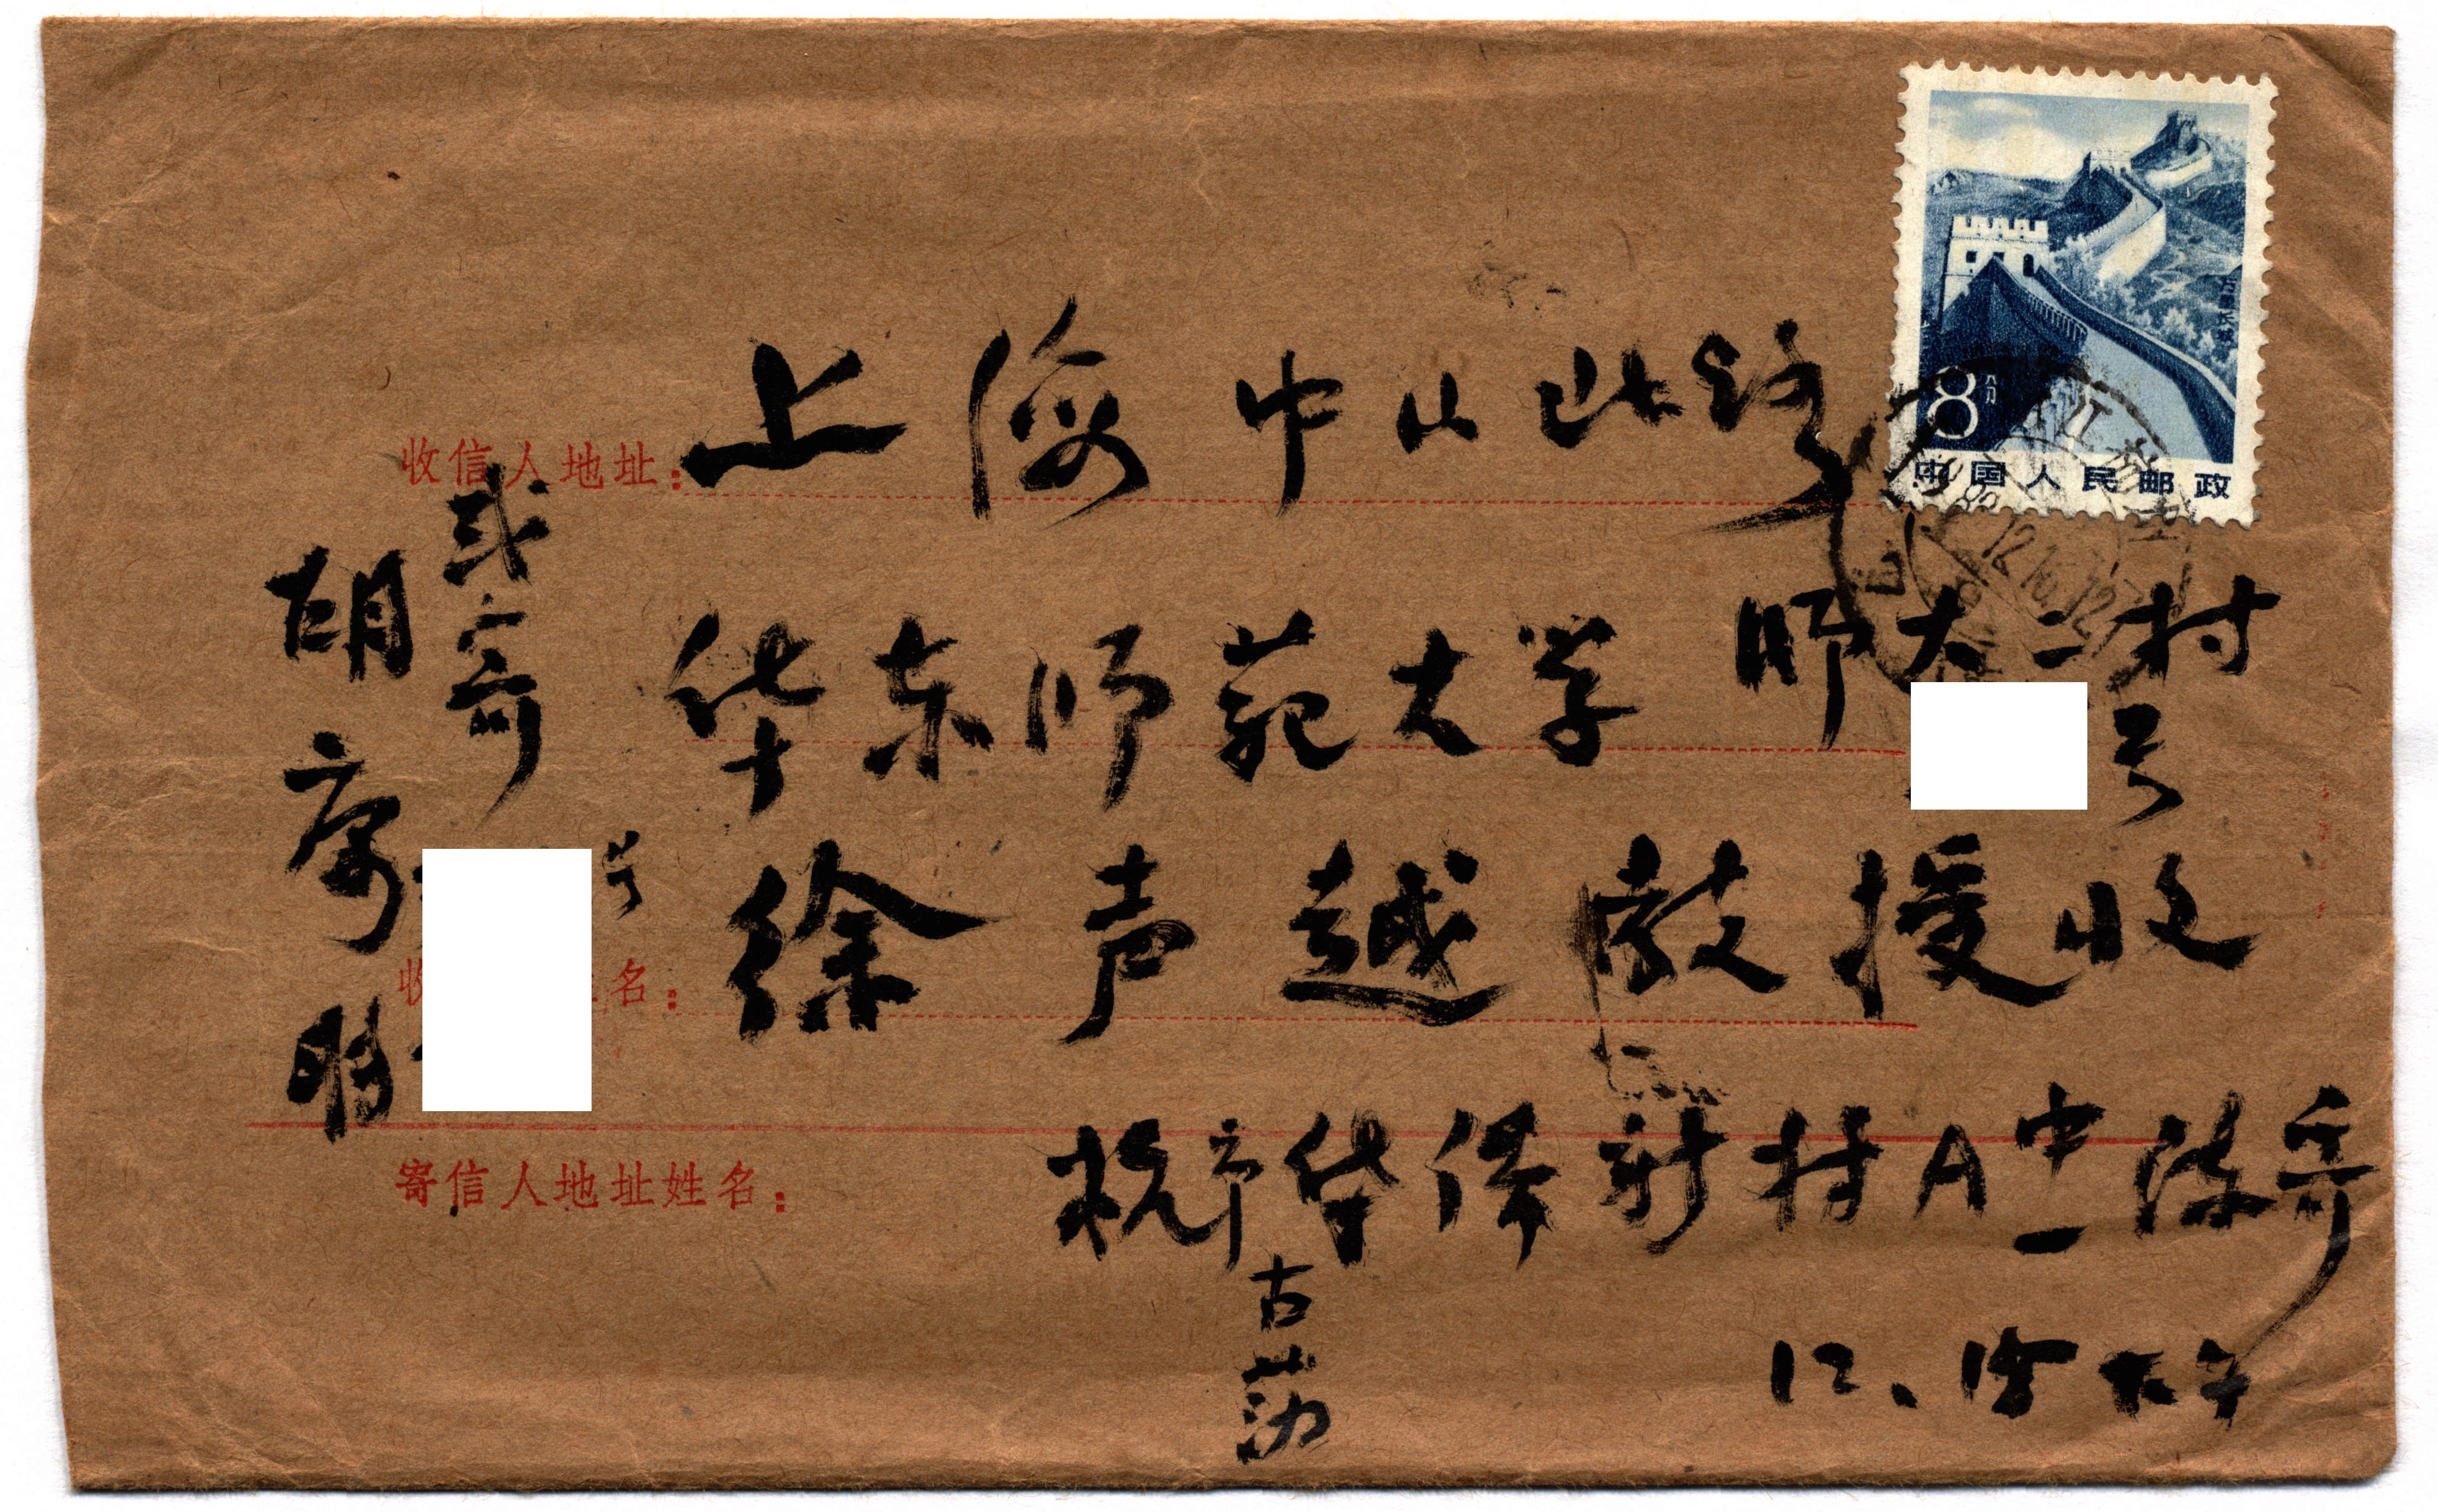 万里长城
8
八分
中国人民邮政
收信人地址：
上海中山北路
华东师范大学 师大二村
号
徐声越教授收
名：
或寄
号
寄信人地址姓名：
杭市华侨新村A中一陈寄
古荡
12.15